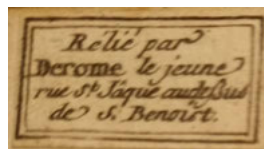 Relié par
Derome le jeune
rue St. Jâque audeßus
de S. Benoist.